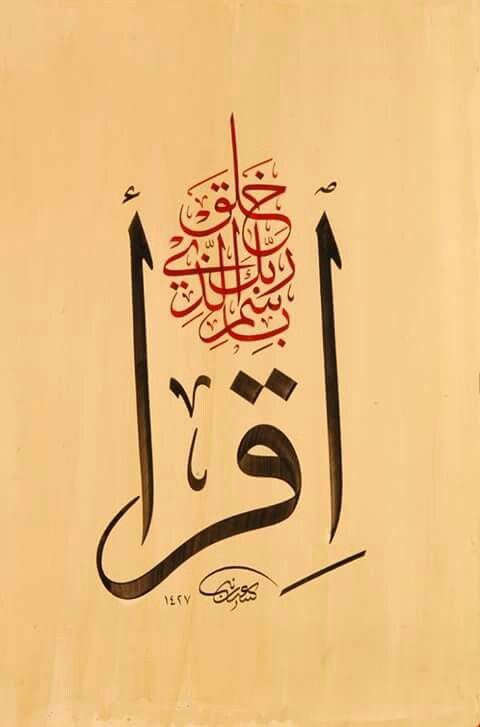 اقْرَأْ
بِاسْمِ رَبِّكَ الَّذِي خَلَقَ
١٤٢٧